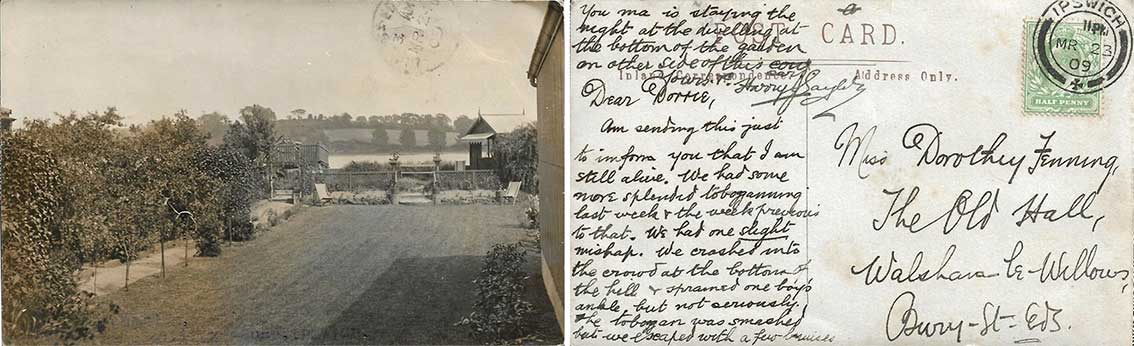 You ma is staying the
night at the dwelling at
the bottom of the garden
on other side of this
POST CARD.
Inland Correspondence
Address Only.
Dear Dorrie,
Am sending this just
to inform you that I am
still alive. We had some
more splendid tobogganning
last week & the week previous
to that. We had one slight
mishap. We crashed into
the crowd at the bottom of
the hill & sprained one boys
ankle, but not seriously
the tobogan was smashed
but we escaped with a few bruises
IPSWICH
11 PM
MR 23
09
HALF PENNY
Miss Dorothy Jenning,
The Old Hall,
Walsham le Willows,
Bury-St-Eds.